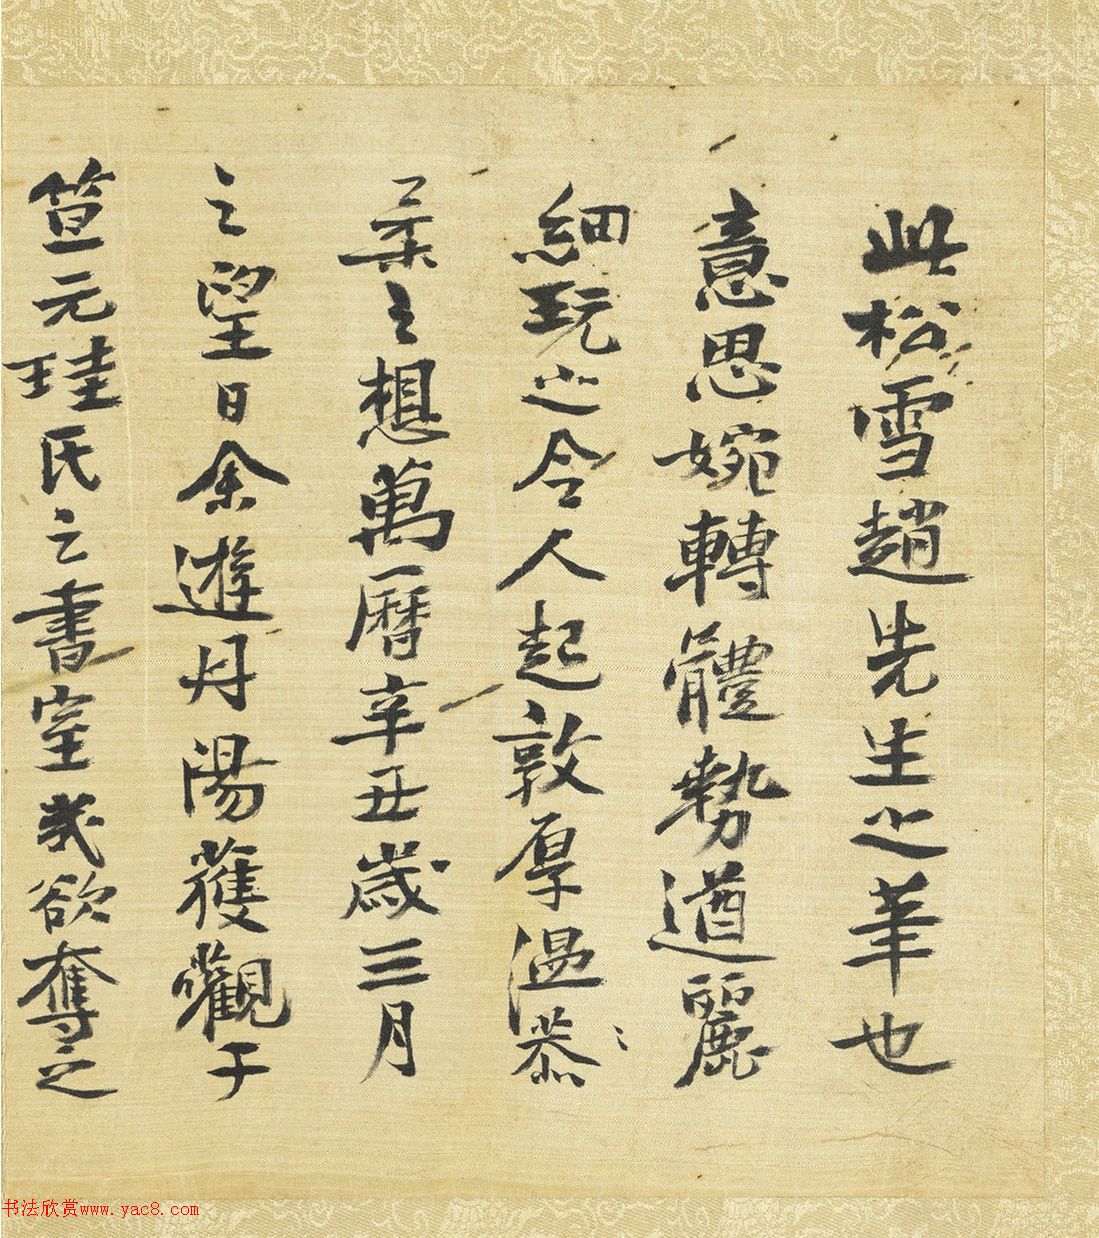 此松雪趙先生之筆也
意思婉轉體勢遒麗
細玩之令人起敦厚溫恭
柔之想萬曆辛丑歲三月
之望日余遊丹陽獲觀于
笪元珪氏之書室幾欲奪之
书法欣赏www.yac8.com